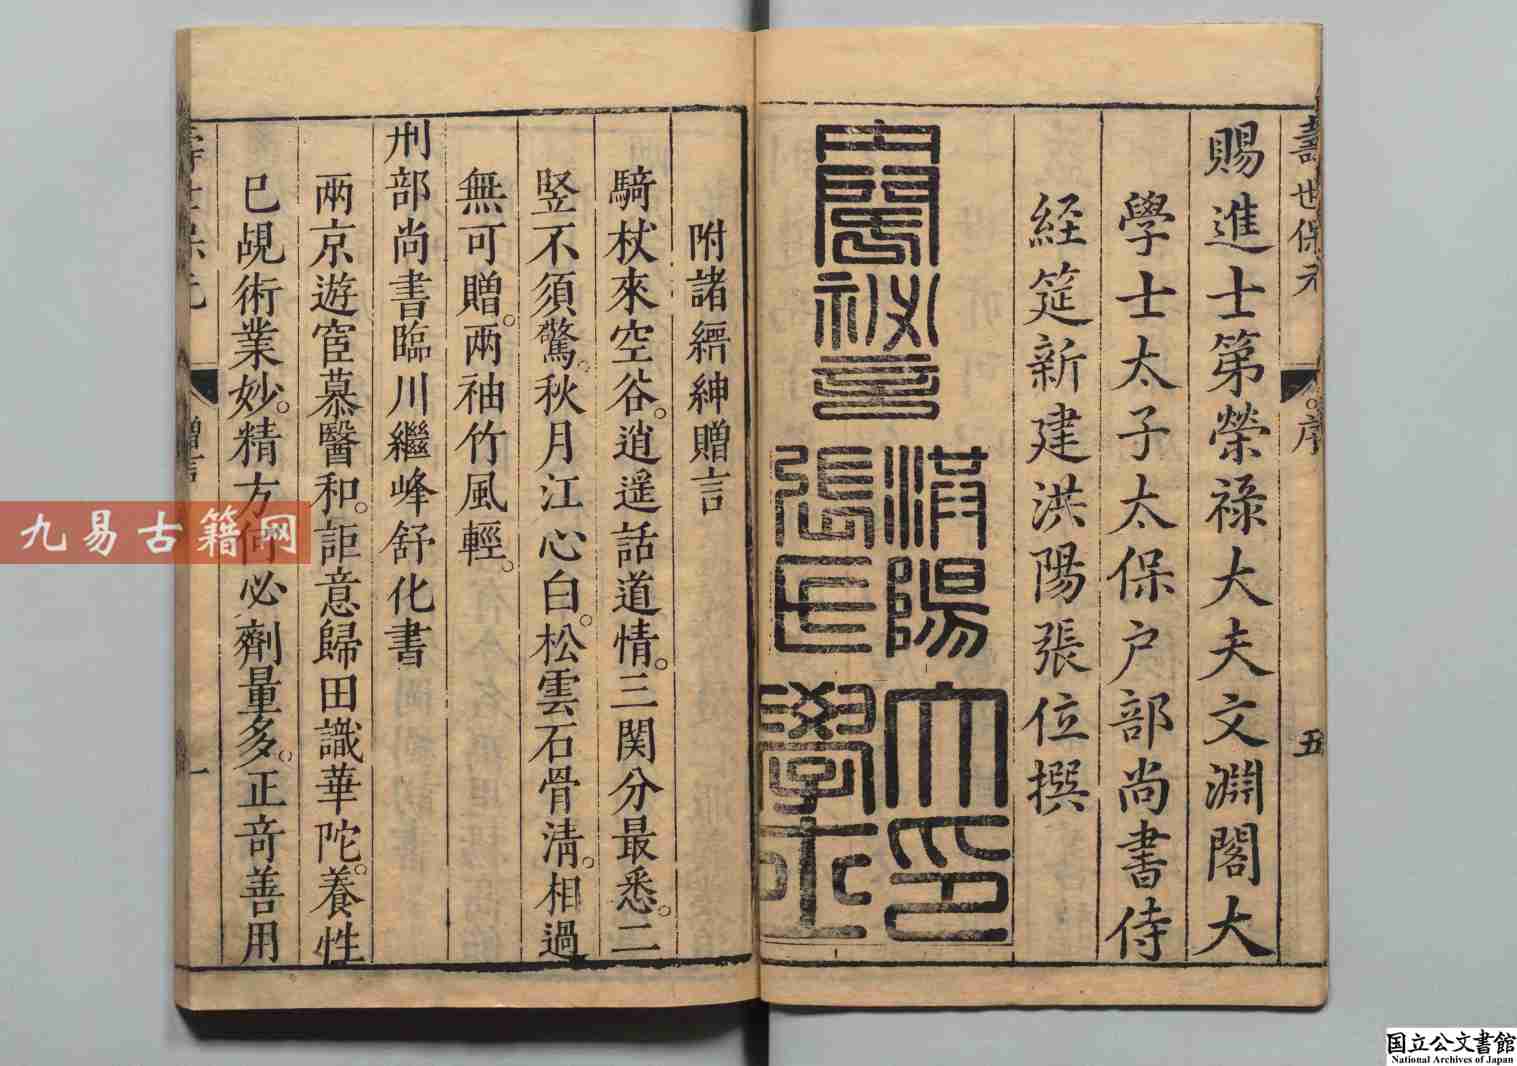 壽世保元
序
五
賜進士第榮祿大夫文淵閣大
學士太子太保户部尚書侍
経筵新建洪陽張位撰
洪陽
張氏
大學士印
附諸縉紳贈言
騎杖來空谷。逍遥話道情。三関分最悉。二
竖不須驚。秋月江心白。松雲石骨清。相過
無可贈。两袖竹風輕。
刑部尚書臨川繼峰舒化書
兩京遊宦慕醫和。詎意歸田識華陀。養性
已覘術業妙。精方何必劑量多。正竒善用
贈言
一
九易古籍网
国立公文書館
National Archives of Japan